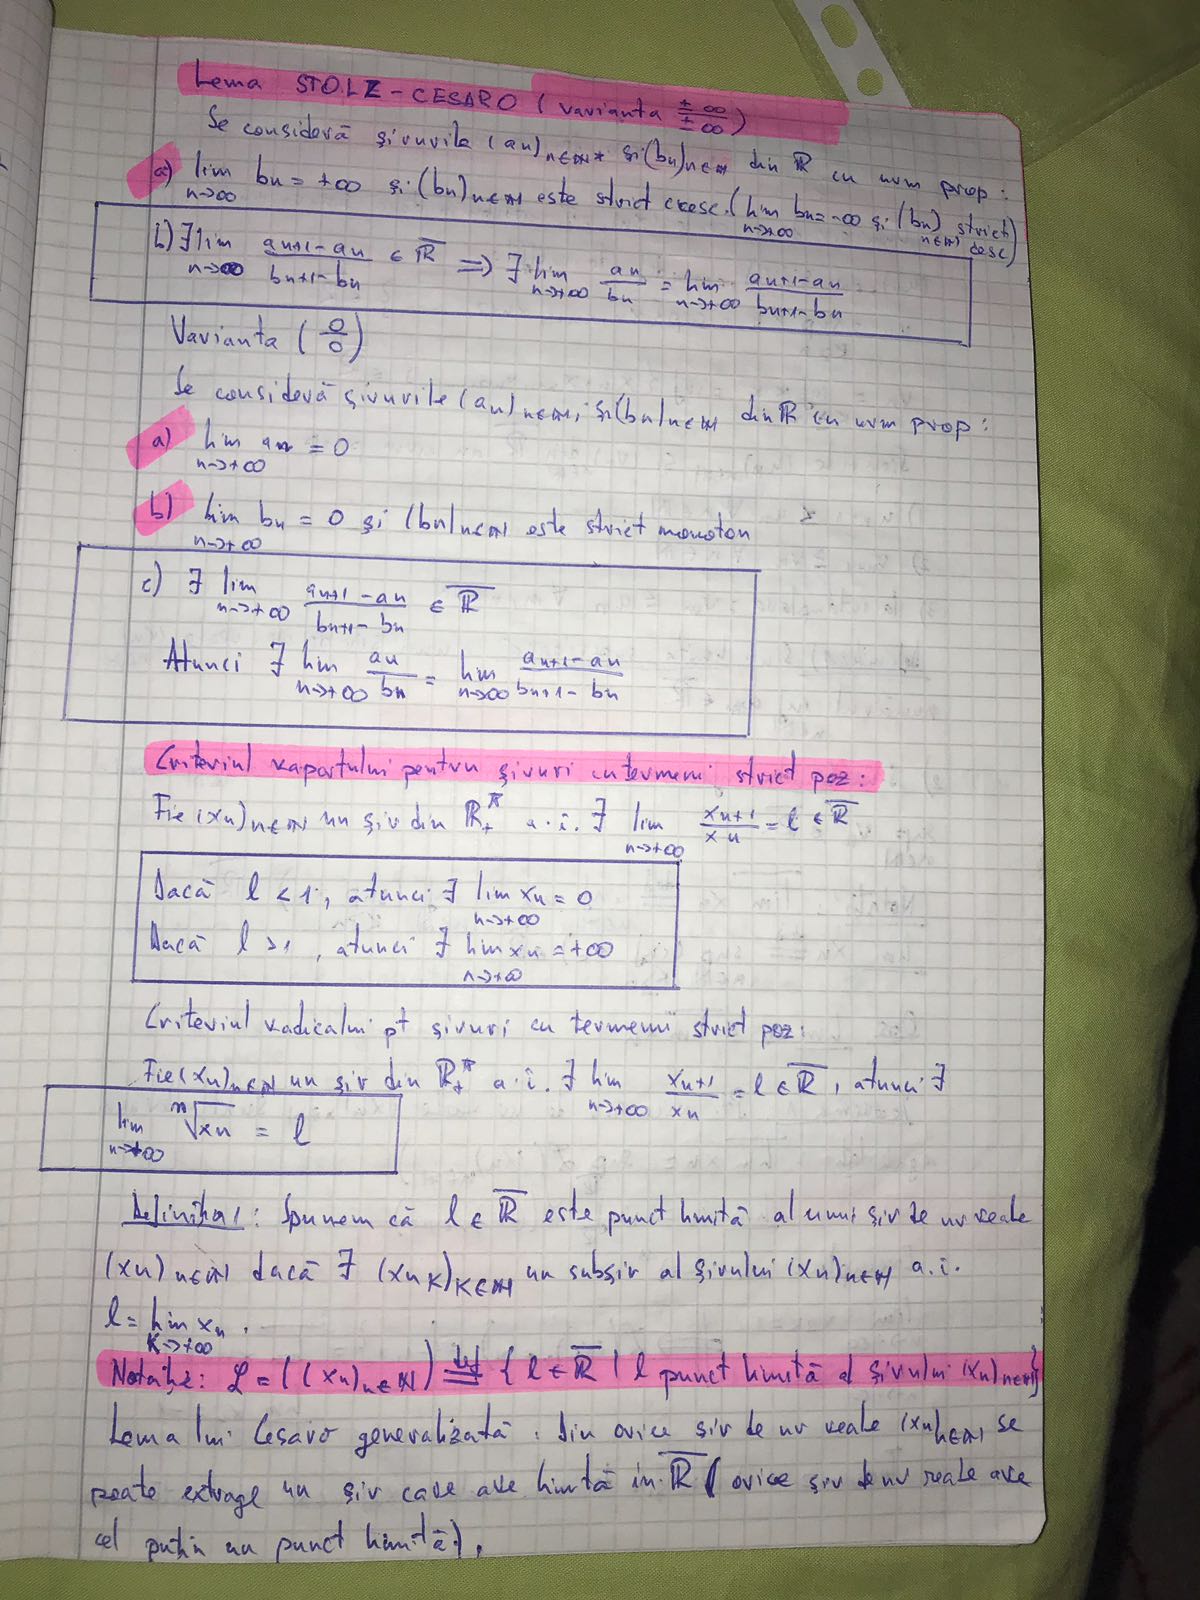 Lema STOLZ-CESARO (varianta ±∞/±∞)
Se consideră șirurile (an)n∈ℕ* și (bn)n∈ℕ din ℝ cu urm prop:
a) lim n→∞ bn = +∞ și (bn)n∈ℕ este strict cresc. (lim n→+∞ bn = -∞ și (bn)n∈ℕ strict desc)
b) ∃ lim n→∞ (an+1 - an)/(bn+1 - bn) ∈ ℝ̅ ⇒ ∃ lim n→+∞ an/bn = lim n→+∞ (an+1 - an)/(bn+1 - bn)
Varianta (0/0)
Se consideră șirurile (an)n∈ℕ, și (bn)n∈ℕ din ℝ cu urm prop:
a) lim n→+∞ an = 0
b) lim n→+∞ bn = 0 și (bn)n∈ℕ este strict monoton
c) ∃ lim n→+∞ (an+1 - an)/(bn+1 - bn) ∈ ℝ̅
Atunci ∃ lim n→+∞ an/bn = lim n→∞ (an+1 - an)/(bn+1 - bn)
Criteriul raportului pentru șiruri cu termeni strict poz:
Fie (xn)n∈ℕ un șir din ℝ*+ a.î. ∃ lim n→+∞ xn+1/xn = l ∈ ℝ̅
Dacă l < 1, atunci ∃ lim n→+∞ xn = 0
Dacă l > 1, atunci ∃ lim n→+∞ xn = +∞
Criteriul radicalui pt șiruri cu termeni strict poz:
Fie (xn)n∈ℕ un șir din ℝ*+ a.î. ∃ lim n→+∞ xn+1/xn = l ∈ ℝ̅, atunci ∃
lim n→+∞ ⁿ√xn = l
Definiția 1: Spunem că l ∈ ℝ̅ este punct limită al unui șir de nr reale
(xn)n∈ℕ dacă ∃ (xnk)k∈ℕ un subșir al șirului (xn)n∈ℕ a.î.
l = lim k→+∞ xn.
Notație: ℒ = ((xn)n∈ℕ) def= {l ∈ ℝ̅ | l punct limită al șirului (xn)n∈ℕ}
Lema lui Cesaro generalizată: Din orice șir de nr reale (xn)n∈ℕ se
poate extrage un șir care are limită în ℝ̅ (orice șir de nr reale are
cel puțin un punct limită).